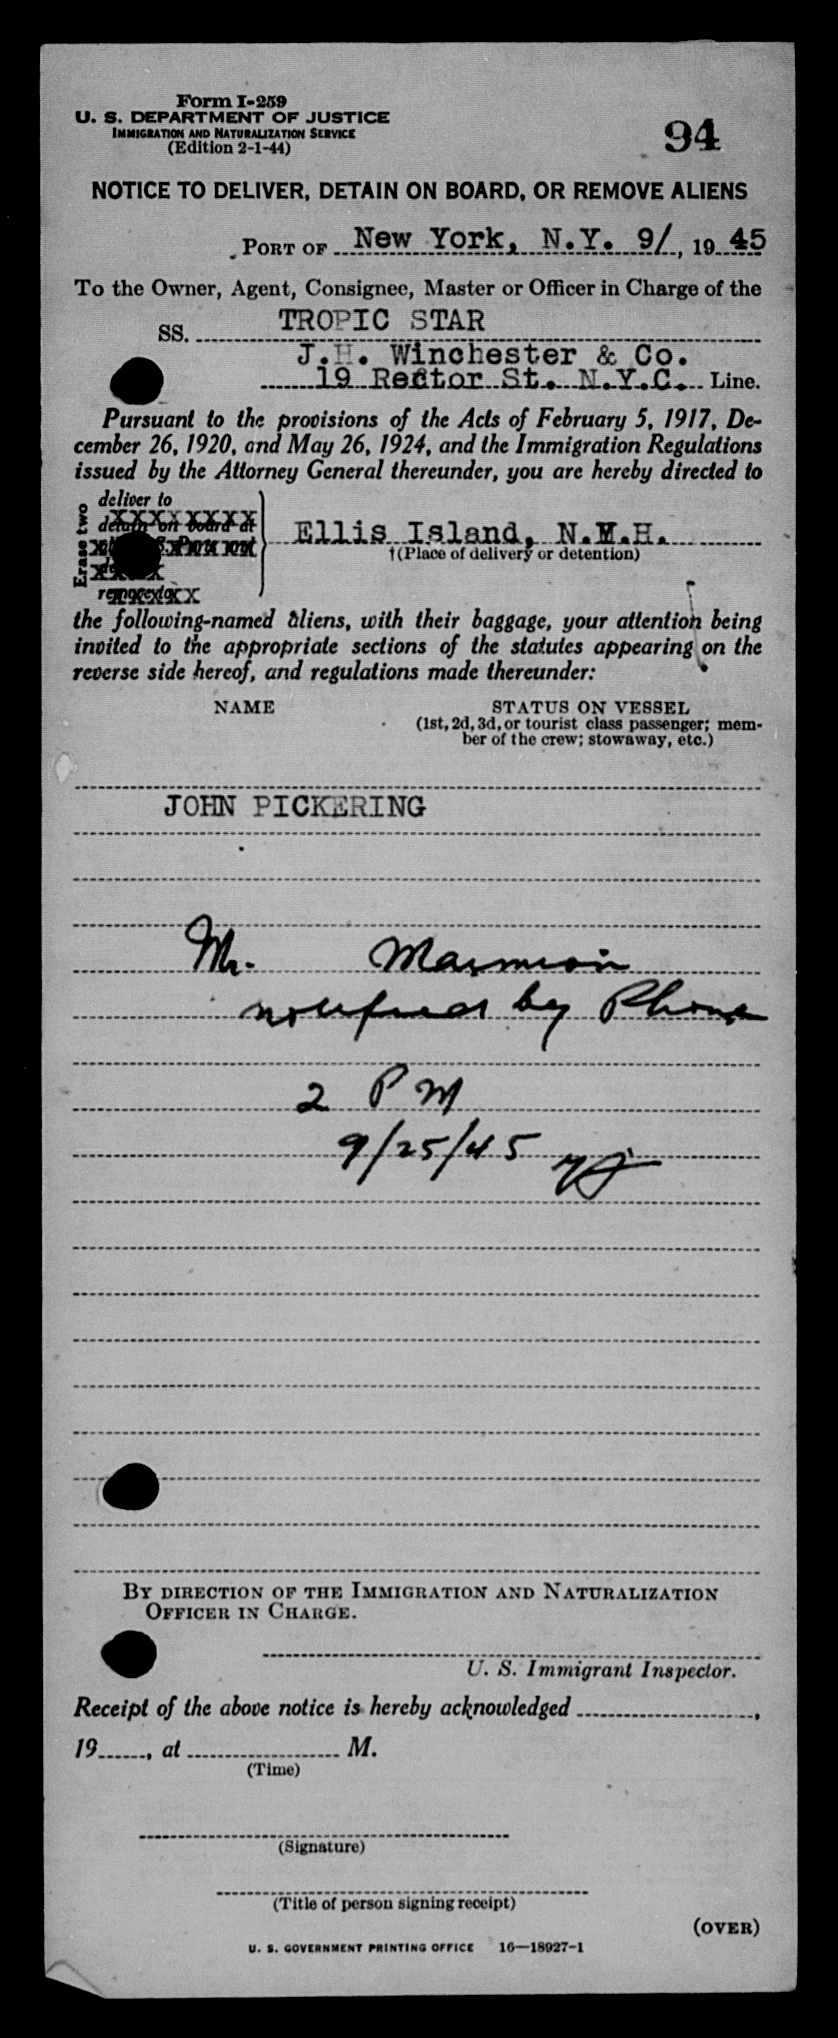 Form I-259
U. S. DEPARTMENT OF JUSTICE
IMMIGRATION AND NATURALIZATION SERVICE
(Edition 2-1-44)
94
NOTICE TO DELIVER, DETAIN ON BOARD, OR REMOVE ALIENS
PORT OF New York, N.Y. 9/, 1945
To the Owner, Agent, Consignee, Master or Officer in Charge of the
SS. TROPIC STAR
J.H. Winchester & Co.
19 Rector St. N.Y.C. Line.
Pursuant to the provisions of the Acts of February 5, 1917, De-
cember 26, 1920, and May 26, 1924, and the Immigration Regulations
issued by the Attorney General thereunder, you are hereby directed to
Erase two
deliver to
detain on board at
remove to
Ellis Island, N.Y.H.
†(Place of delivery or detention)
the following-named aliens, with their baggage, your attention being
invited to the appropriate sections of the statutes appearing on the
reverse side hereof, and regulations made thereunder:
NAME STATUS ON VESSEL
(1st, 2d, 3d, or tourist class passenger; mem-
ber of the crew; stowaway, etc.)
JOHN PICKERING
Mr. Marmion
notified by Phone
2 PM
9/25/45
BY DIRECTION OF THE IMMIGRATION AND NATURALIZATION
OFFICER IN CHARGE.
U. S. Immigrant Inspector.
Receipt of the above notice is hereby acknowledged ,
19 , at M.
(Time)
(Signature)
(Title of person signing receipt)
(OVER)
U. S. GOVERNMENT PRINTING OFFICE 16—18927-1